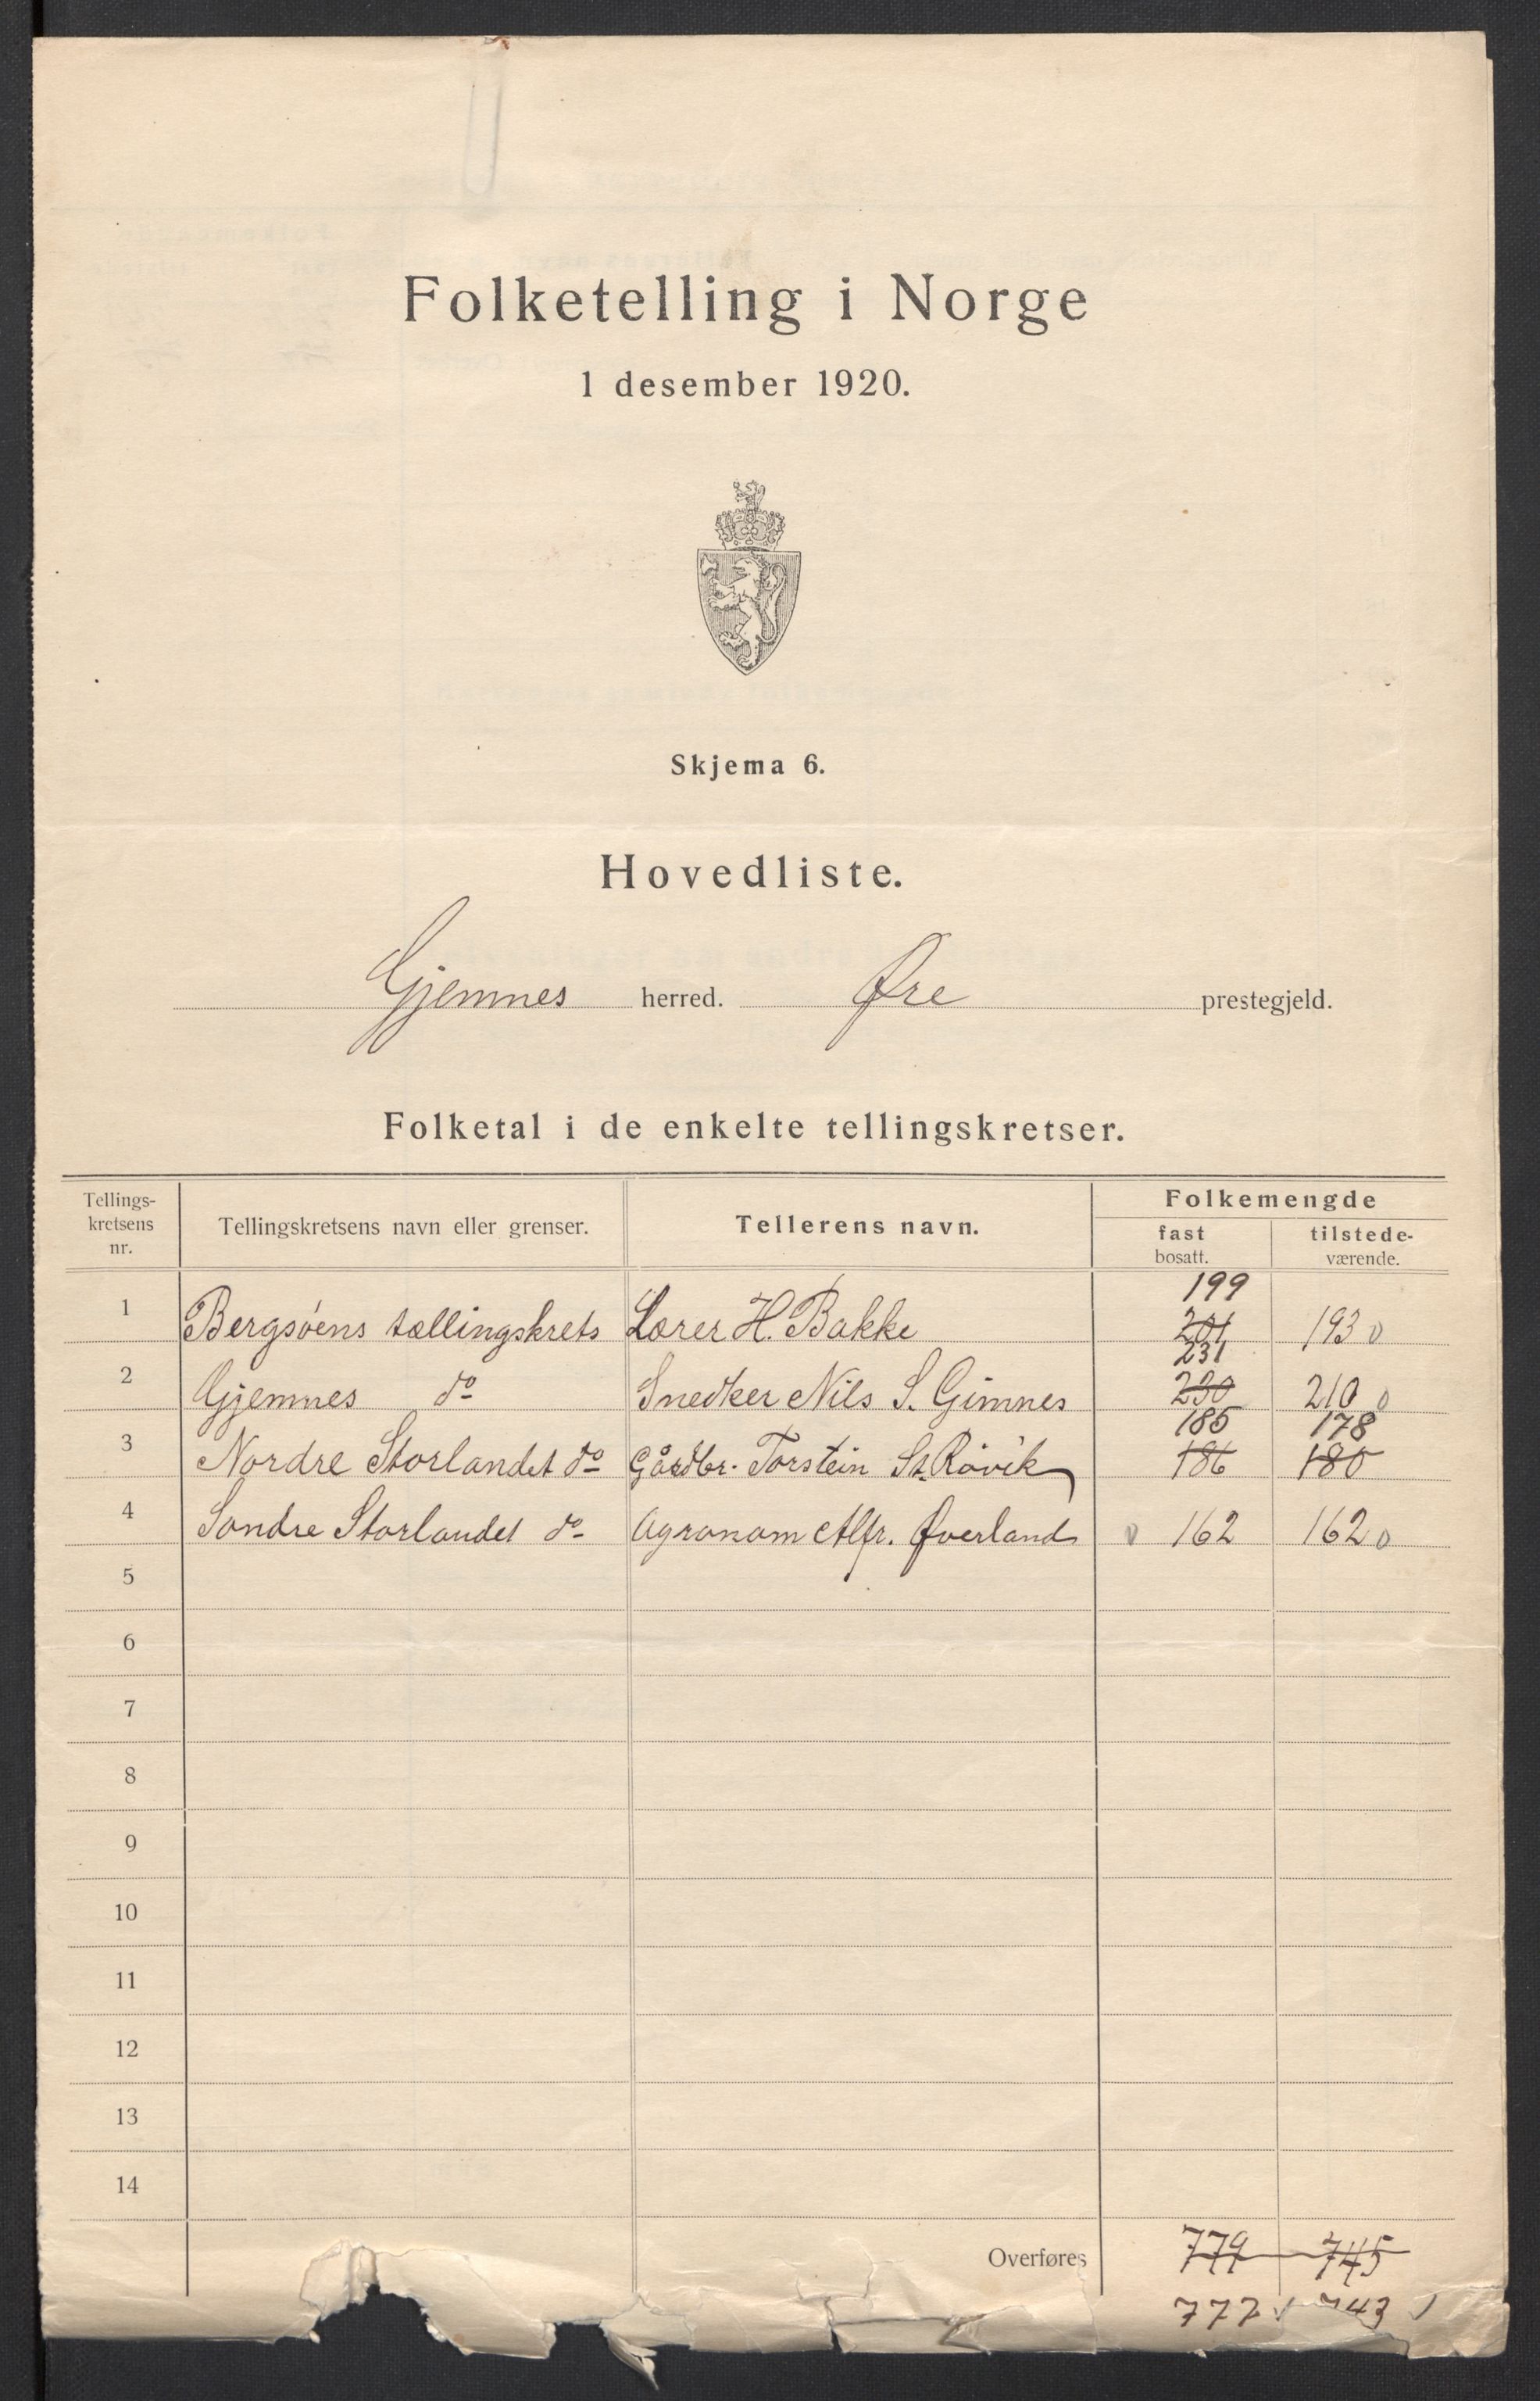 Folketelling i Norge
1 desember 1920.
Skjema 6.
Hovedliste.
Gjemnes herred. Øre prestegjeld.
Folketal i de enkelte tellingskretser.
Tellings-
kretsens
nr.
Tellingskretsens navn eller grenser.
Tellerens navn.
Folkemengde
fast
bosatt.
tilstede-
værende.
199
1 Bergsöens tællingskrets Lærer H. Bakke 201 193
231
2 Gjemnes do Snedker Nils S. Gimnes 230 210
185 178
3 Nordre Storlandet do Gårdbr. Torstein St. Rövik 186 180
4 Söndre Storlandet do Agronom Alfr. Øverland 162 162
5
6
7
8
9
10
11
12
13
14
Overføres 779 745
777 743